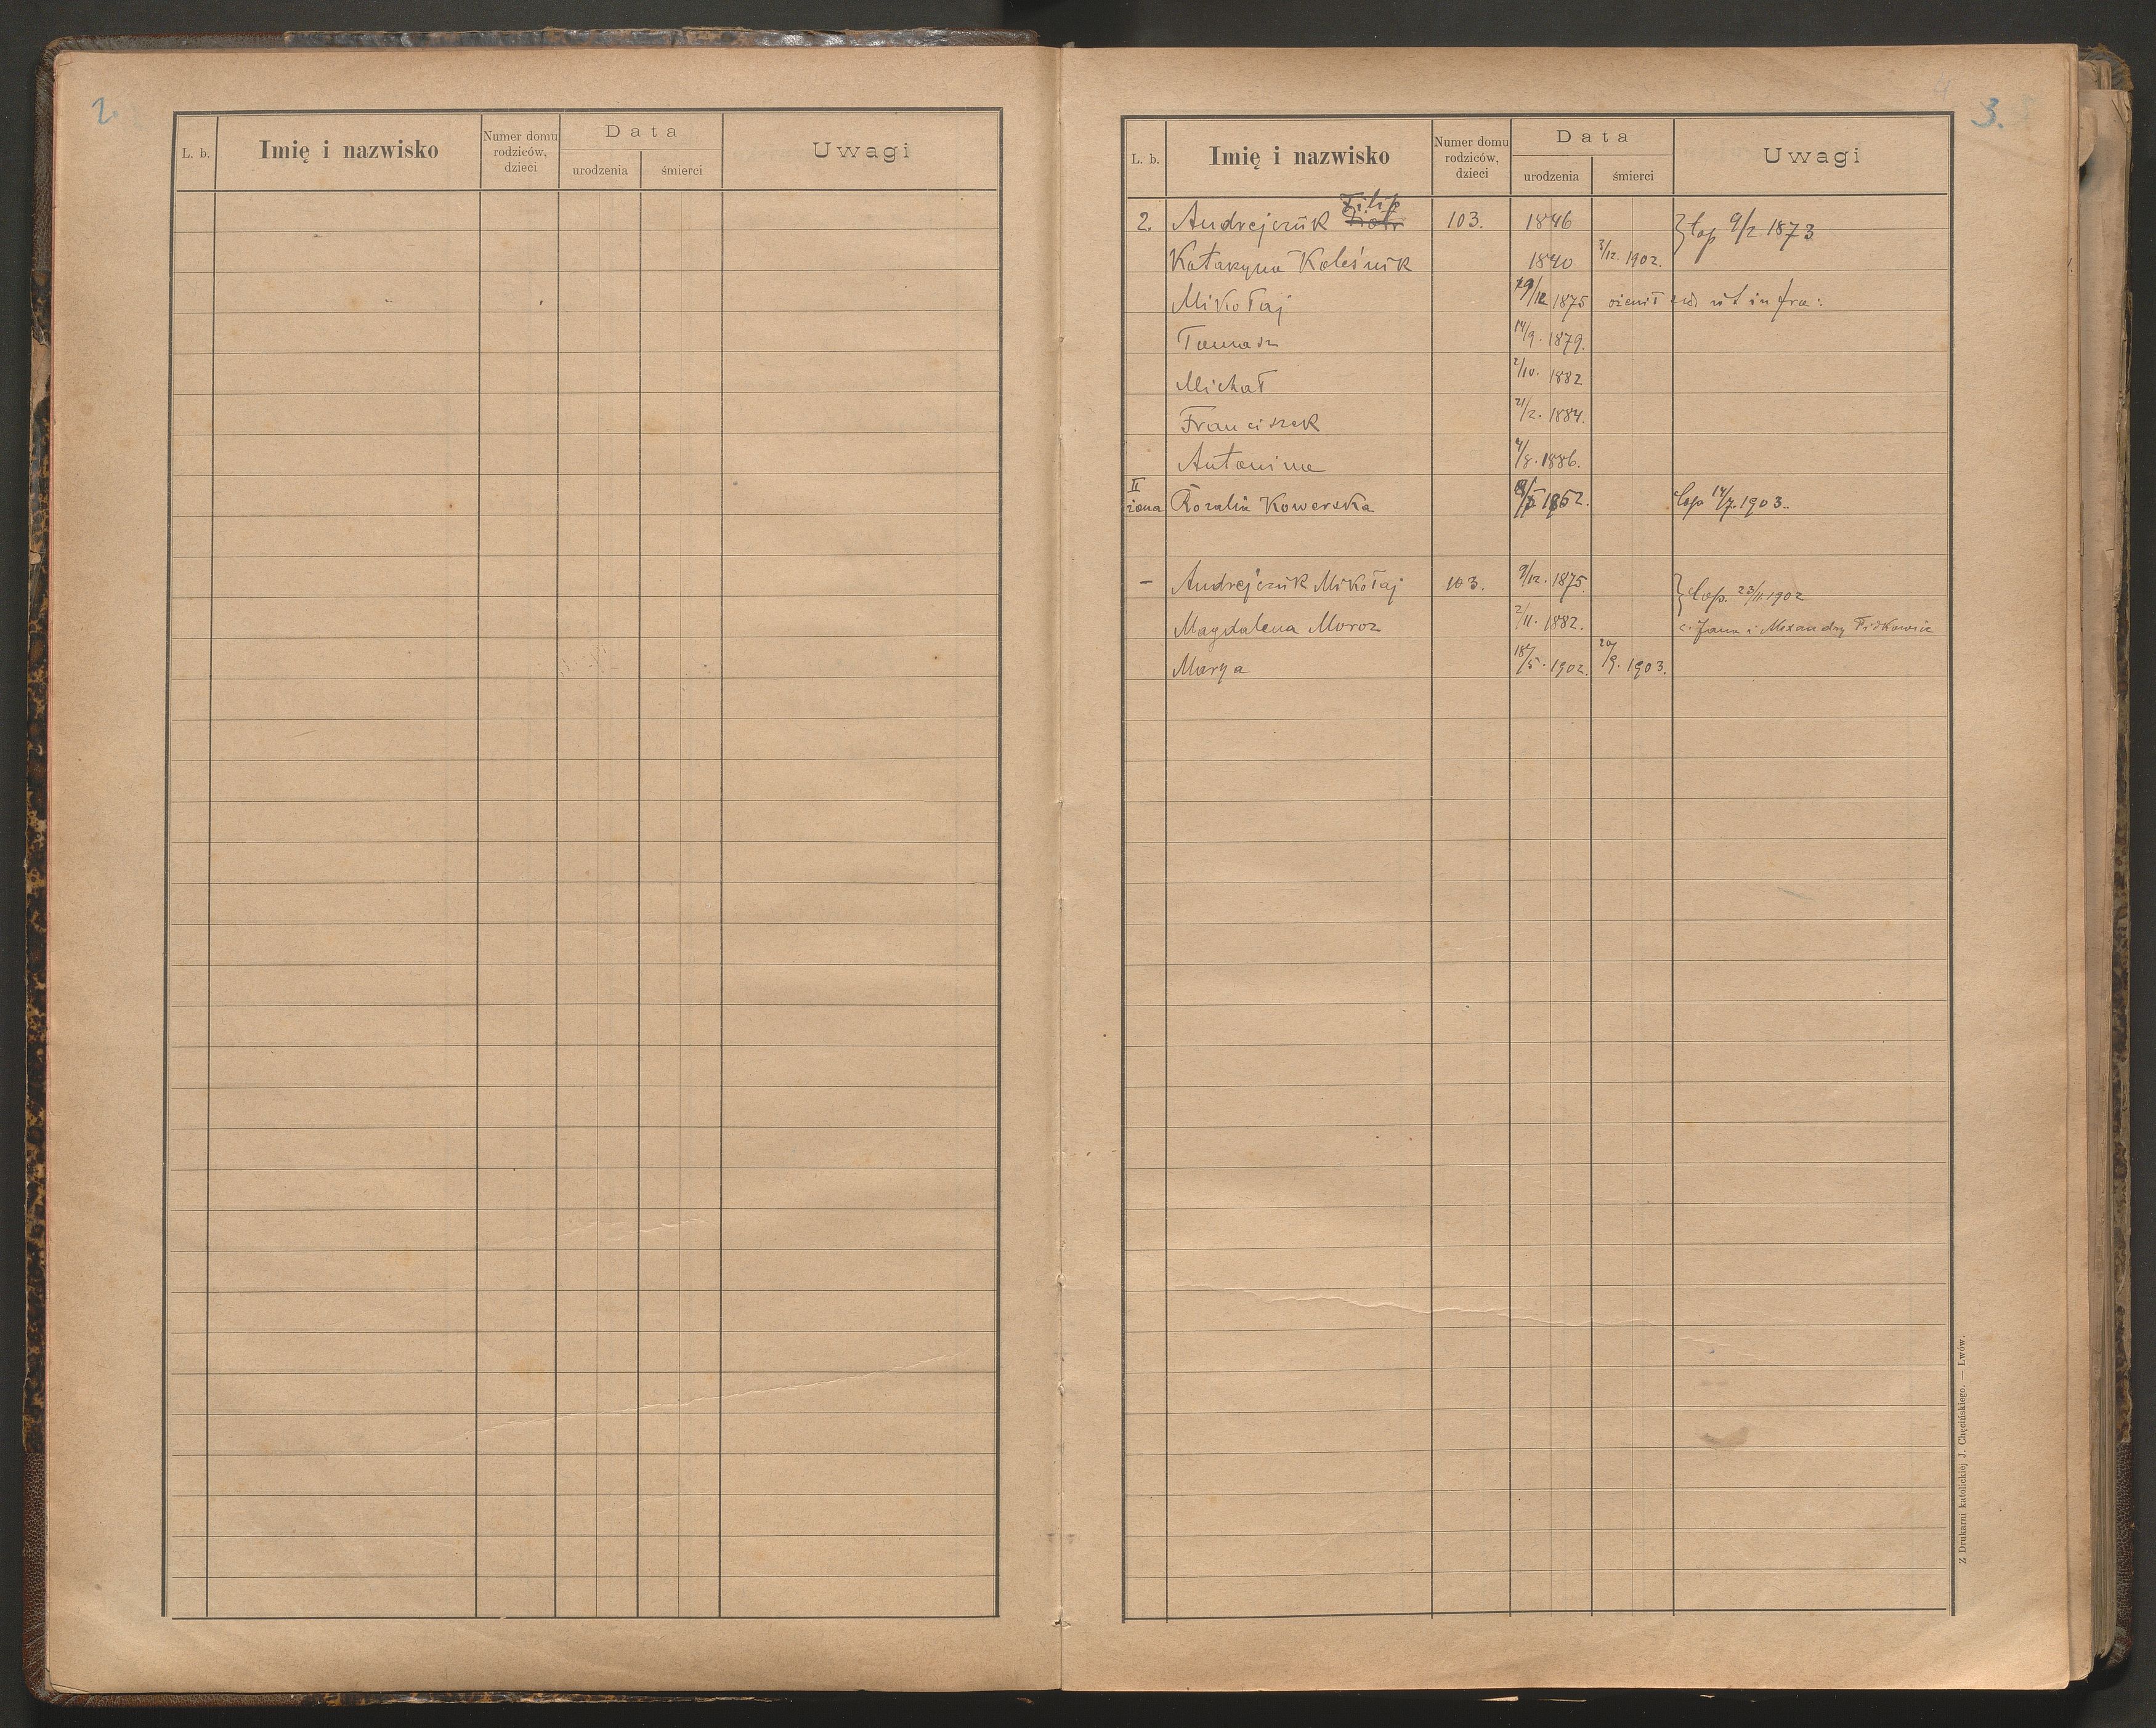 2.
L. b. Imię i nazwisko Numer domu rodziców, dzieci Data urodzenia śmierci Uwagi
3.
L. b. Imię i nazwisko Numer domu rodziców, dzieci Data urodzenia śmierci Uwagi
Filip
2. Andrejczuk Piotr 103. 1846 cop 9/2 1873
Katarzyna Koleśnik 1840 3/12. 1902.
Mikołaj 12 1875 ożenił się ut infra:
Tomasz 14/9. 1879.
Michał 2/10. 1882
Franciszek 21/2. 1884.
Antonina 4/8. 1886.
II
żona Rozalia Kowerska 1852. cop 14/7. 1903.
— Andrejczuk Mikołaj 103. 9/12. 1875. cop. 23/11. 1902
Magdalena Moroz 2/11. 1882. c. Jana i Alexandry Fidkowicz
Marya 18/5. 1902. 20/9. 1903.
Z Drukarni katolickiej J. Chęcińskiego. — Lwów.